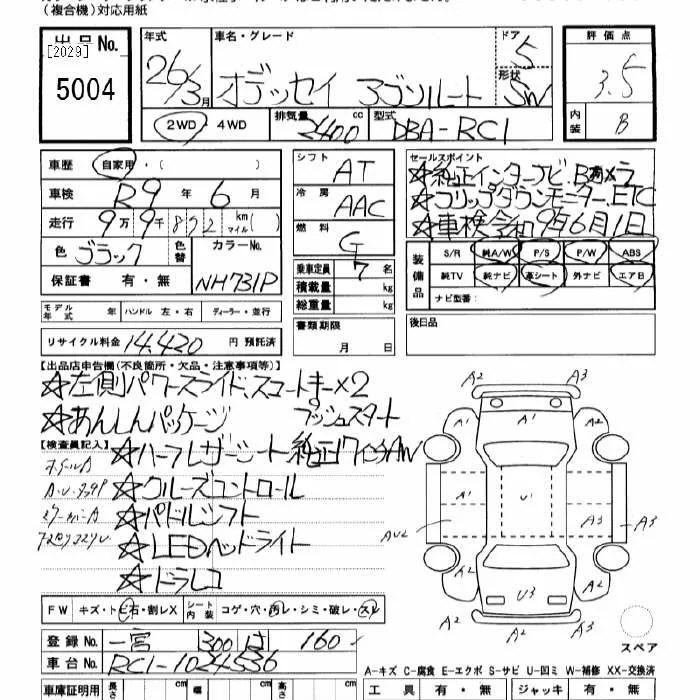 (複合機)対応用紙
出品No.
[2029]
5004
年式
26/3月
車名・グレード
オデッセイ アブソルート
ドア
5
形状
SW
評価点
3.5
内装
B
2WD・4WD
排気量 2400 cc
型式 DBA-RC1
車歴 自家用・( )
車検 R9 年 6 月
走行 9万9千892 km マイル( )
色 ブラック
色替
カラーNo. NH731P
保証書 有・無
シフト AT
冷房 AAC
燃料 G
乗車定員 7 名
積載量 kg
総重量 kg
セールスポイント
☆純正インターナビ.Bカメラ
☆フリップダウンモニター.ETC
☆車検令和9年6月1日
装備品
S/R 純A/W P/S P/W ABS
純TV 純ナビ 革シート 外ナビ エアB
ナビ型番:
モデル年式
ハンドル 左・右
ディーラー・並行
リサイクル料金 14,420 円 預託済
書類期限
月 日
後日品
【出品店申告欄(不良箇所・欠品・注意事項等)】
☆左側パワースライド.スマートキー×2
☆あんしんパッケージ プッシュスタート
【検査員記入】
☆ハーフレザーシート 純正17インチAW
☆クルーズコントロール
☆パドルシフト
☆LEDヘッドライト
☆ドラレコ
ホイールA
A2 A3
A2 A1 A2
A1 U1 A3 A3
AU2
A2 U3 A2
A2 A3
スペア
FW キズ・トビ石・割レX
シート内装 コゲ・穴・汚レ・シミ・破レ・スレ
登録No. 一宮 300 は 160
車台No. RC1-1021536
A-キズ C-腐食 E-エクボ S-サビ U-凹ミ W-補修 XX-交換済
車庫証明用 長さ cm 幅 cm 高さ cm
工具 有・無 ジャッキ 有・無